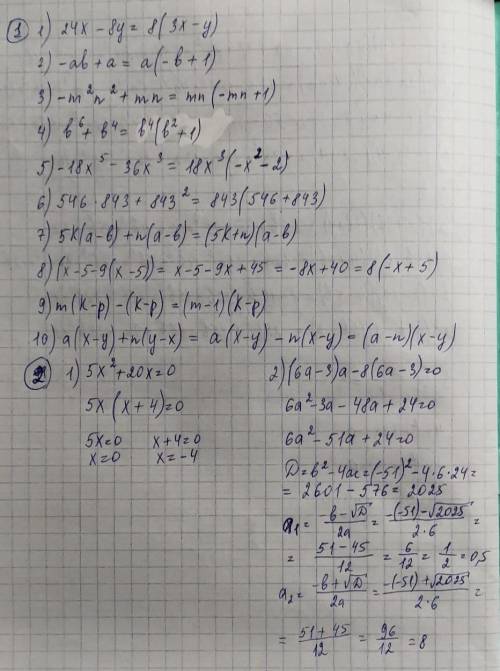 1 1) 24x - 8y = 8(3x - y)
2) -ab + a = a(-b + 1)
3) -m²n² + mn = mn(-mn + 1)
4) b⁶ + b⁴ = b⁴(b² + 1)
5) -18x⁵ - 36x³ = 18x³(-x² - 2)
6) 546 · 843 + 843² = 843(546 + 843)
7) 5k(a-b) + n(a-b) = (5k+n)(a-b)
8) (x - 5 - 9(x - 5)) = x - 5 - 9x + 45 = -8x + 40 = 8(-x + 5)
9) m(k-p) - (k-p) = (m-1)(k-p)
10) a(x-y) + n(y-x) = a(x-y) - n(x-y) = (a-n)(x-y)
2 1) 5x² + 20x = 0
5x(x + 4) = 0
5x = 0 x + 4 = 0
x = 0 x = -4
2) (6a - 3)a - 8(6a - 3) = 0
6a² - 3a - 48a + 24 = 0
6a² - 51a + 24 = 0
D = b² - 4ac = (-51)² - 4·6·24 =
= 2601 - 576 = 2025
a₁ = (-b - √D)/2a = (-(-51) - √2025)/(2·6) =
= (51 - 45)/12 = 6/12 = 1/2 = 0,5
a₂ = (-b + √D)/2a = (-(-51) + √2025)/(2·6) =
= (51 + 45)/12 = 96/12 = 8